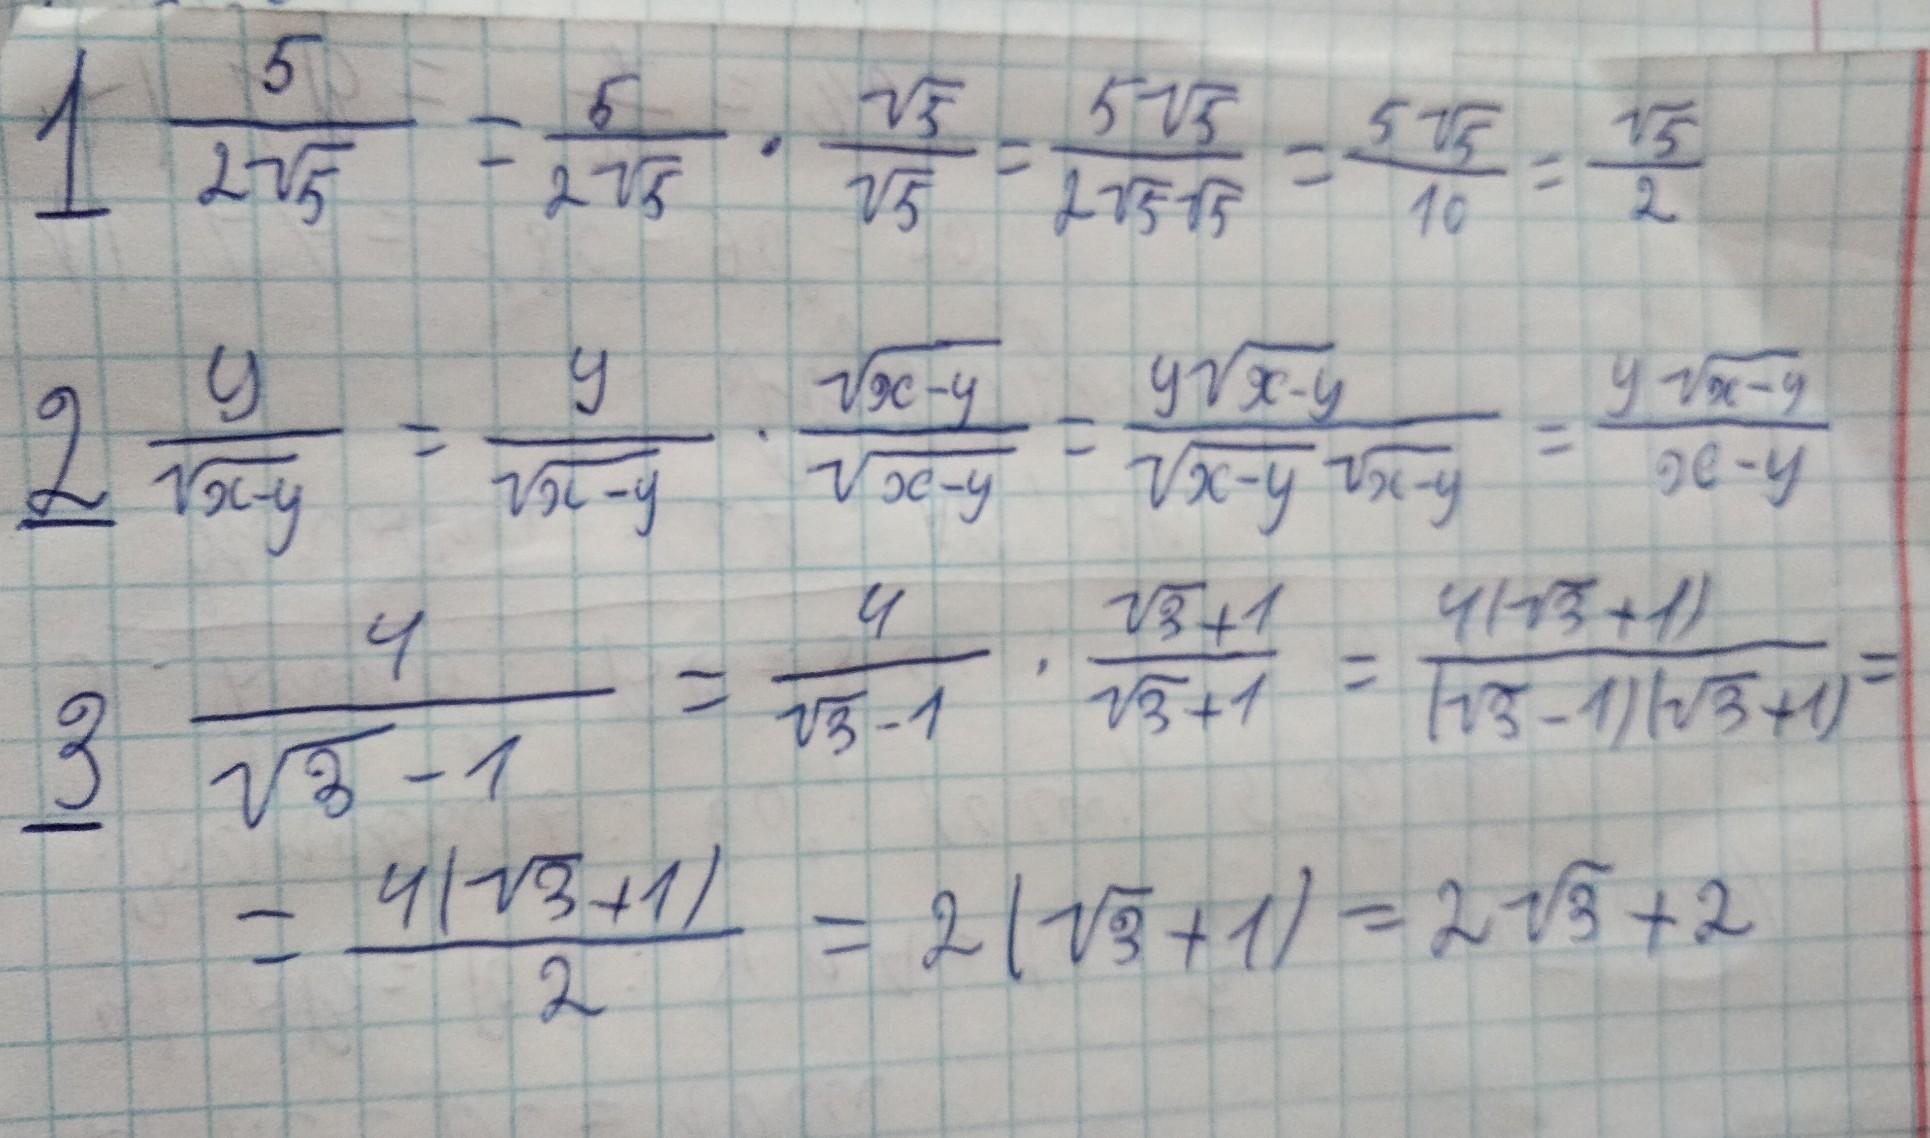 1 5/(2√5) = 5/(2√5) · √5/√5 = 5√5/(2√5√5) = 5√5/10 = √5/2
2 y/√(x-y) = y/√(x-y) · √(x-y)/√(x-y) = y√(x-y)/(√(x-y)√(x-y)) = y√(x-y)/(x-y)
3 4/(√3-1) = 4/(√3-1) · (√3+1)/(√3+1) = 4(√3+1)/((√3-1)(√3+1)) =
= 4(√3+1)/2 = 2(√3+1) = 2√3+2